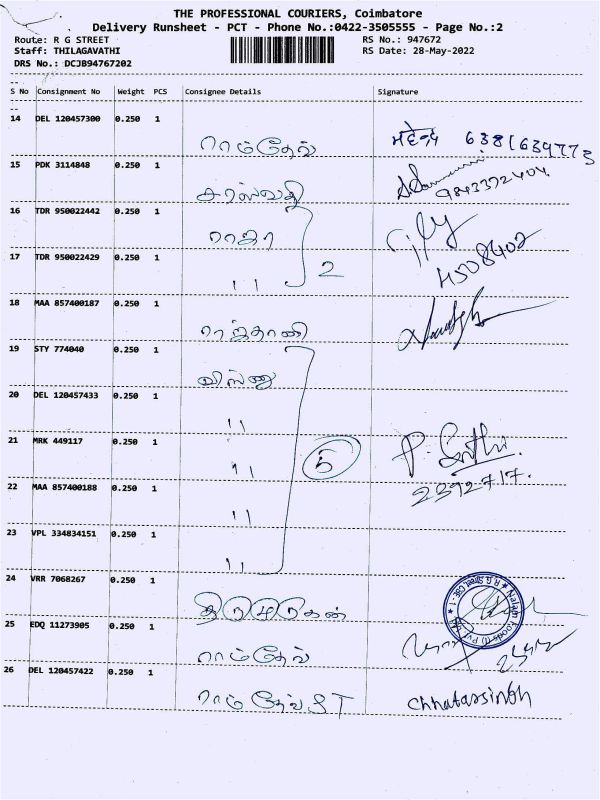 THE PROFESSIONAL COURIERS, Coimbatore
Delivery Runsheet - PCT - Phone No.:0422-3505555 - Page No.:2
Route: R G STREET RS No.: 947672
Staff: THILAGAVATHI RS Date: 28-May-2022
DRS No.: DCJB94767202
S No Consignment No Weight PCS Consignee Details Signature
14 DEL 120457300 0.250 1
ராம்தேவ் 6381639773
15 PDK 3114848 0.250 1
சரஸ்வதி 9843372404
16 TDR 950022442 0.250 1
ராஜா
17 TDR 950022429 0.250 1
" 2 4508402
18 MAA 857400187 0.250 1
ராஜ்தானி
19 STY 774040 0.250 1
விஸ்ணு
20 DEL 120457433 0.250 1
"
21 MRK 449117 0.250 1
" 5 P.
22 MAA 857400188 0.250 1
" 2392717.
23 VPL 334834151 0.250 1
"
24 VRR 7068267 0.250 1
திருமுருகன்
25 EDQ 11273905 0.250 1
ராம்தேவ்
26 DEL 120457422 0.250 1
ராம்தேவ் ST Chhatarsingh